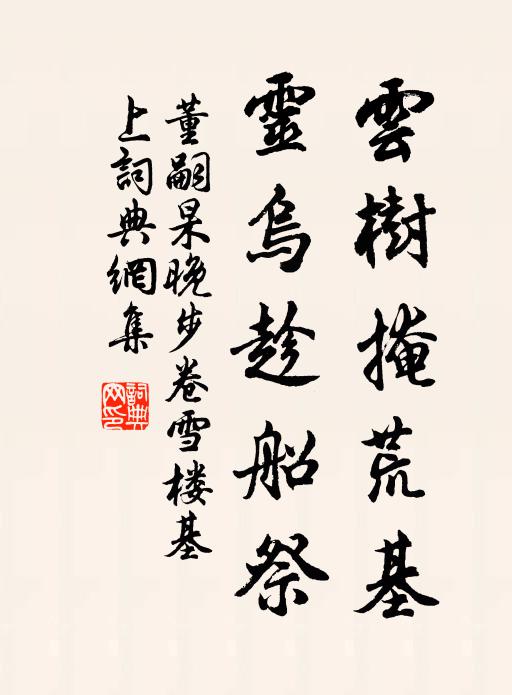 雲樹掩荒基
靈烏趁船祭
董嗣杲晚步卷雪楼基
上詞典網集
詞典
网印